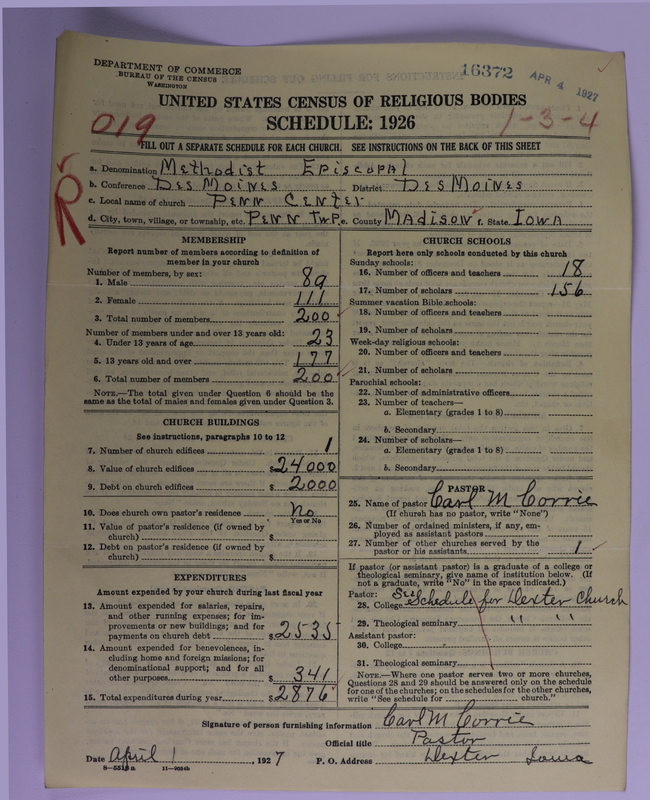 DEPARTMENT OF COMMERCE
BUREAU OF THE CENSUS
WASHINGTON
16372
APR 4 1927
UNITED STATES CENSUS OF RELIGIOUS BODIES
SCHEDULE: 1926
019
1-3-4
FILL OUT A SEPARATE SCHEDULE FOR EACH CHURCH. SEE INSTRUCTIONS ON THE BACK OF THIS SHEET
R
a. Denomination Methodist Episcopal
b. Conference Des Moines District Des Moines
c. Local name of church Penn Center
d. City, town, village, or township, etc. Penn Twp. e. County Madison f. State Iowa
MEMBERSHIP
Report number of members according to definition of
member in your church
Number of members, by sex:
1. Male 89
2. Female 111
3. Total number of members 200
Number of members under and over 13 years old:
4. Under 13 years of age 23
5. 13 years old and over 177
6. Total number of members 200
NOTE.—The total given under Question 6 should be
same as the total of males and females given under Question 3.
CHURCH BUILDINGS
See instructions, paragraphs 10 to 12
7. Number of church edifices 1
8. Value of church edifices $24000
9. Debt on church edifices $2000
10. Does church own pastor's residence No
Yes or No
11. Value of pastor's residence (if owned by
church) $
12. Debt on pastor's residence (if owned by
church) $
EXPENDITURES
Amount expended by your church during last fiscal year
13. Amount expended for salaries, repairs,
and other running expenses; for im-
provements or new buildings; and for
payments on church debt $2535
14. Amount expended for benevolences, in-
cluding home and foreign missions; for
denominational support; and for all
other purposes 341
15. Total expenditures during year $2876
CHURCH SCHOOLS
Report here only schools conducted by this church
Sunday schools:
16. Number of officers and teachers 18
17. Number of scholars 156
Summer vacation Bible schools:
18. Number of officers and teachers
19. Number of scholars
Week-day religious schools:
20. Number of officers and teachers
21. Number of scholars
Parochial schools:
22. Number of administrative officers
23. Number of teachers—
a. Elementary (grades 1 to 8)
b. Secondary
24. Number of scholars—
a. Elementary (grades 1 to 8)
b. Secondary
PASTOR
25. Name of pastor Carl M Corrie
(If church has no pastor, write "None")
26. Number of ordained ministers, if any, em-
ployed as assistant pastors
27. Number of other churches served by the
pastor or his assistants 1
If pastor (or assistant pastor) is a graduate of a college or
theological seminary, give name of institution below. (If
not a graduate, write "No" in the space indicated.)
Pastor:
28. College See Schedule for Dexter Church
29. Theological seminary " "
Assistant pastor:
30. College
31. Theological seminary
NOTE.—Where one pastor serves two or more churches,
Questions 28 and 29 should be answered only on the schedule
for one of the churches; on the schedules for the other churches,
write "See schedule for church."
Signature of person furnishing information Carl M Corrie
Official title Pastor
Date April 1, 1927 P. O. Address Dexter Iowa